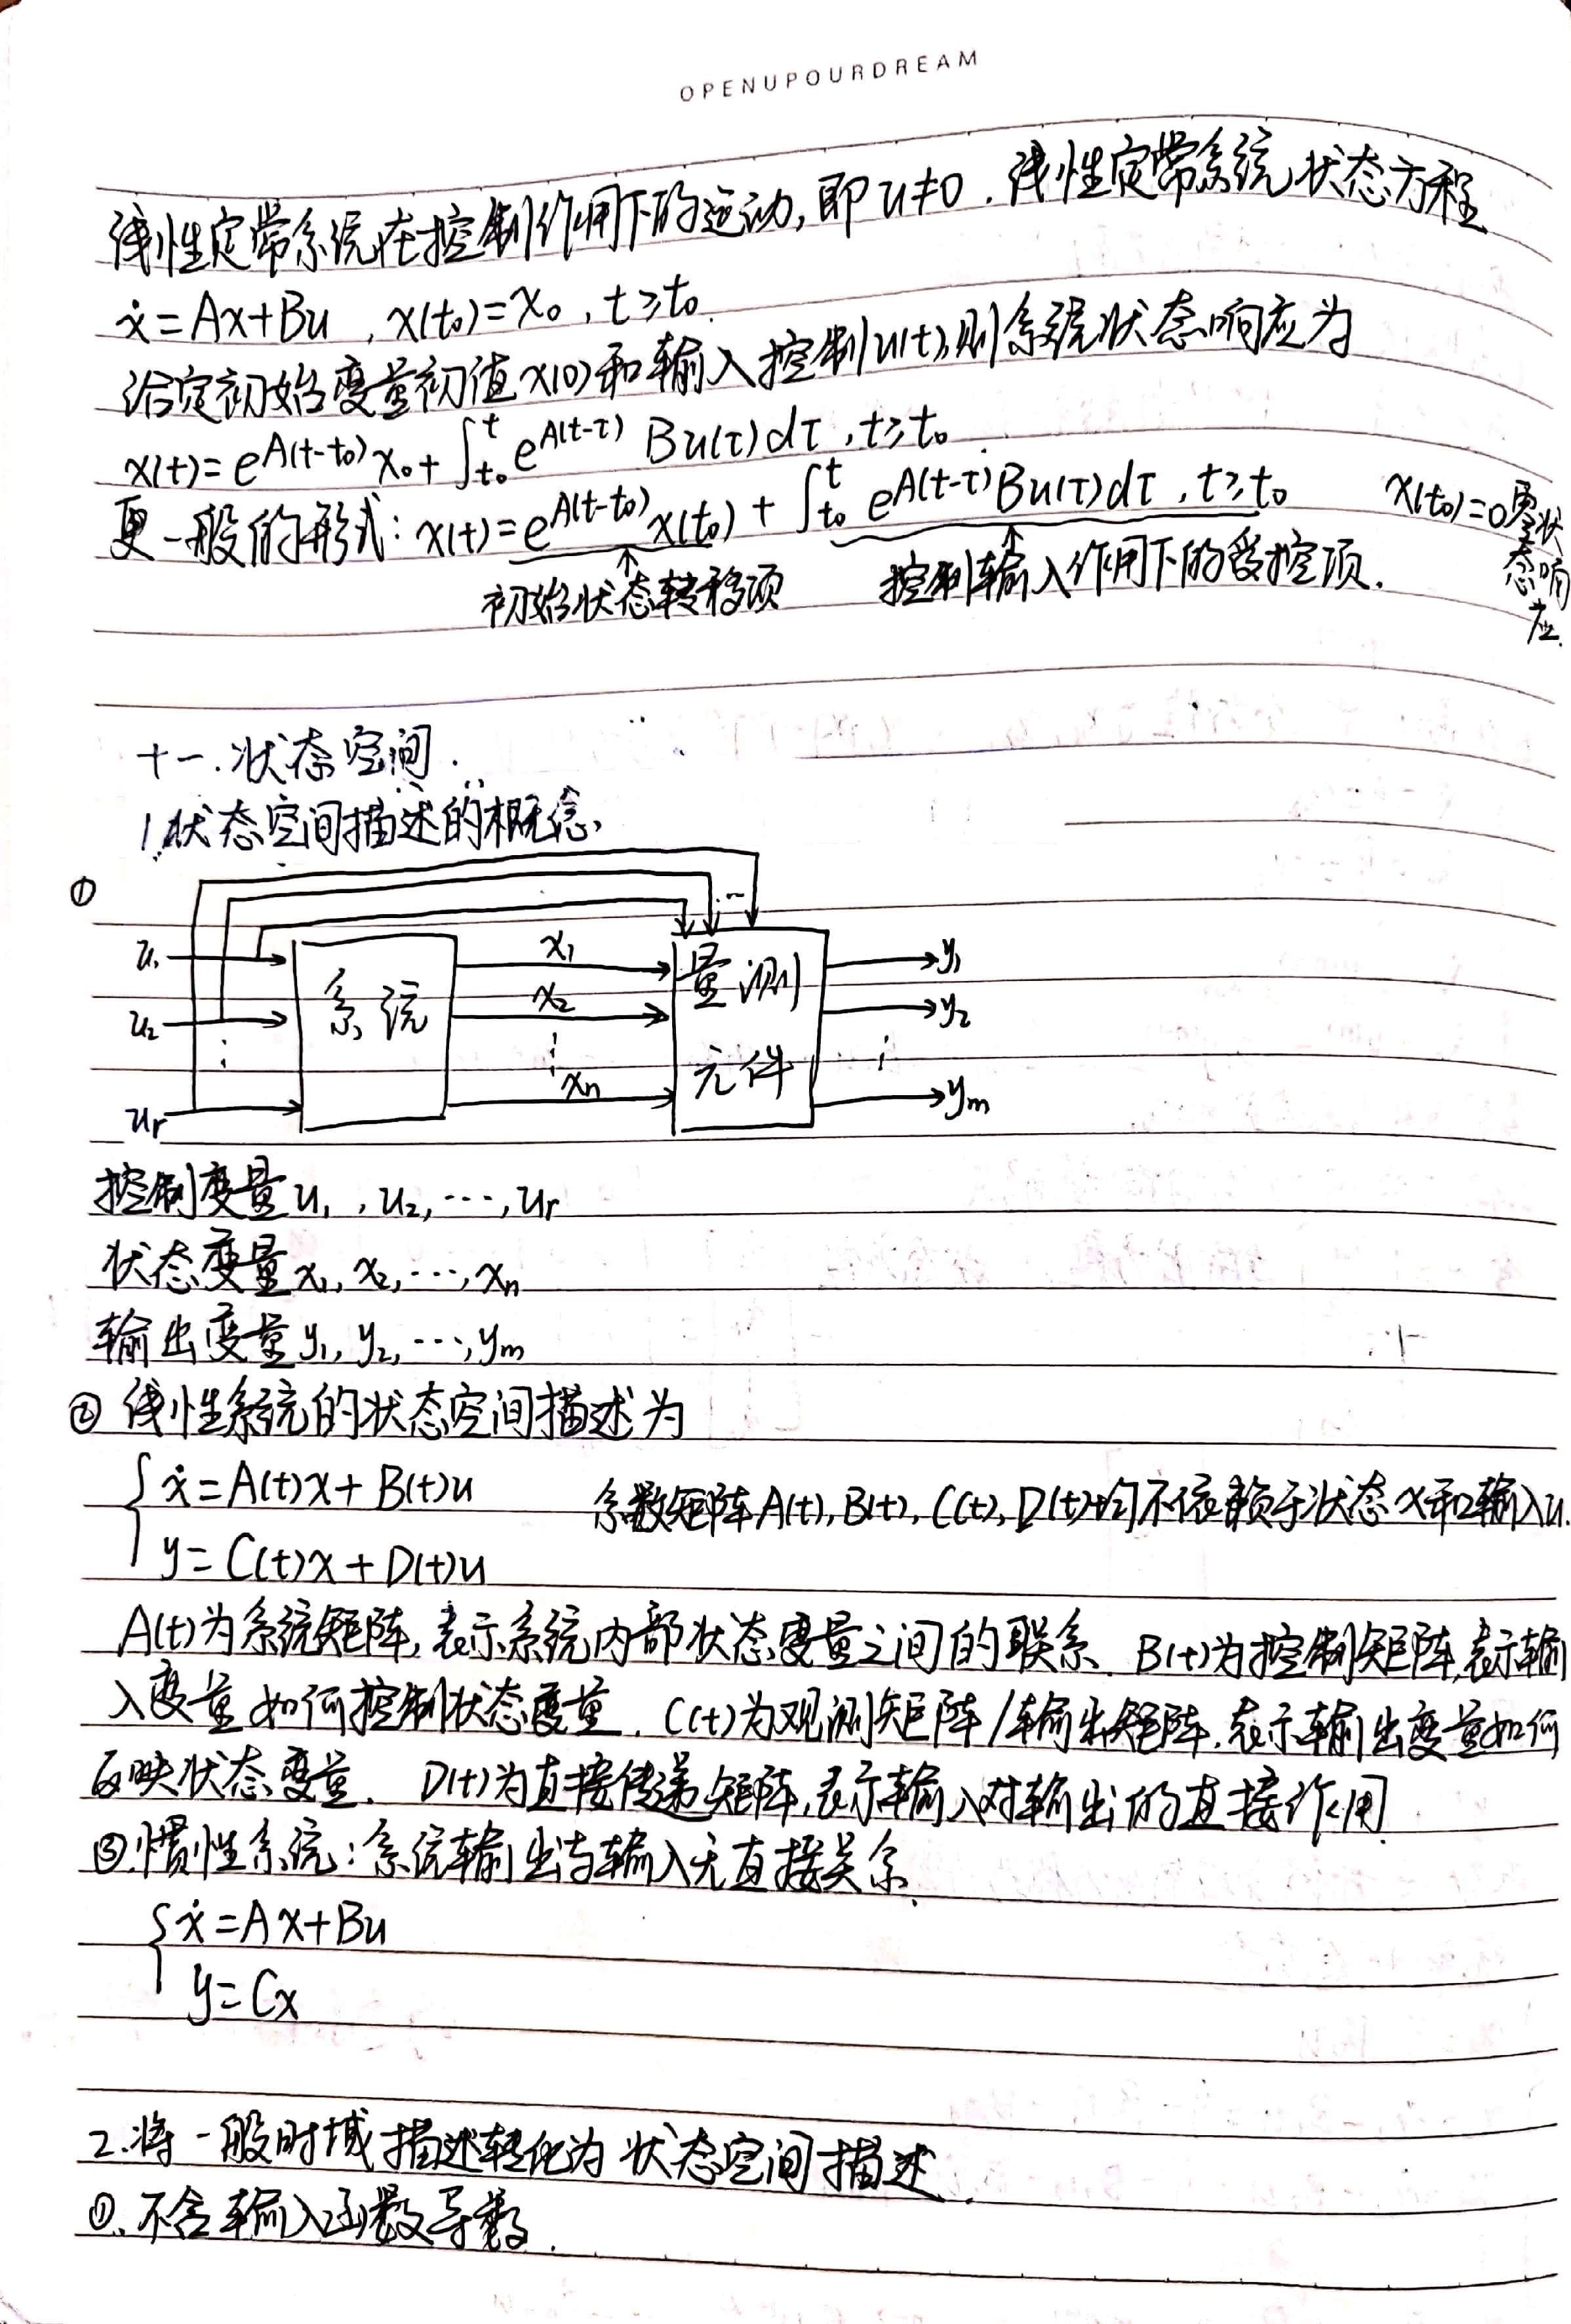 OPENUPOURDREAM
线性定常系统在控制作用下的运动,即u≠0.线性定常系统状态方程
ẋ=Ax+Bu ,x(t₀)=x₀,t≥t₀.
给定初始变量初值x(0)和输入控制u(t),则系统状态响应为
x(t)=e^{A(t-t₀)}x₀+∫_{t₀}^{t}e^{A(t-τ)}Bu(τ)dτ,t≥t₀.
更一般的形式:x(t)=e^{A(t-t₀)}x(t₀)+∫_{t₀}^{t}e^{A(t-τ)}Bu(τ)dτ,t≥t₀ x(t₀)=0零状态响应.
初始状态转移项 控制输入作用下的受控项.
十一.状态空间.
1.状态空间描述的概念.
①
u₁ 系统 x₁ 量测 y₁
u₂ x₂ y₂
⋮ ⋮ ⋮
uᵣ xₙ 元件 yₘ
控制变量u₁,u₂,⋯,uᵣ
状态变量x₁,x₂,⋯,xₙ
输出变量y₁,y₂,⋯,yₘ
② 线性系统的状态空间描述为
{ẋ=A(t)x+B(t)u 系数矩阵A(t),B(t),C(t),D(t)均不依赖于状态x和输入u.
y=C(t)x+D(t)u
A(t)为系统矩阵,表示系统内部状态变量之间的联系.B(t)为控制矩阵,表示输
入变量如何控制状态变量.C(t)为观测矩阵/输出矩阵,表示输出变量如何
反映状态变量.D(t)为直接传递矩阵,表示输入对输出的直接作用.
③惯性系统:系统输出与输入无直接关系.
{ẋ=Ax+Bu
y=Cx
2.将一般时域描述转化为状态空间描述.
①.不含输入函数导数.